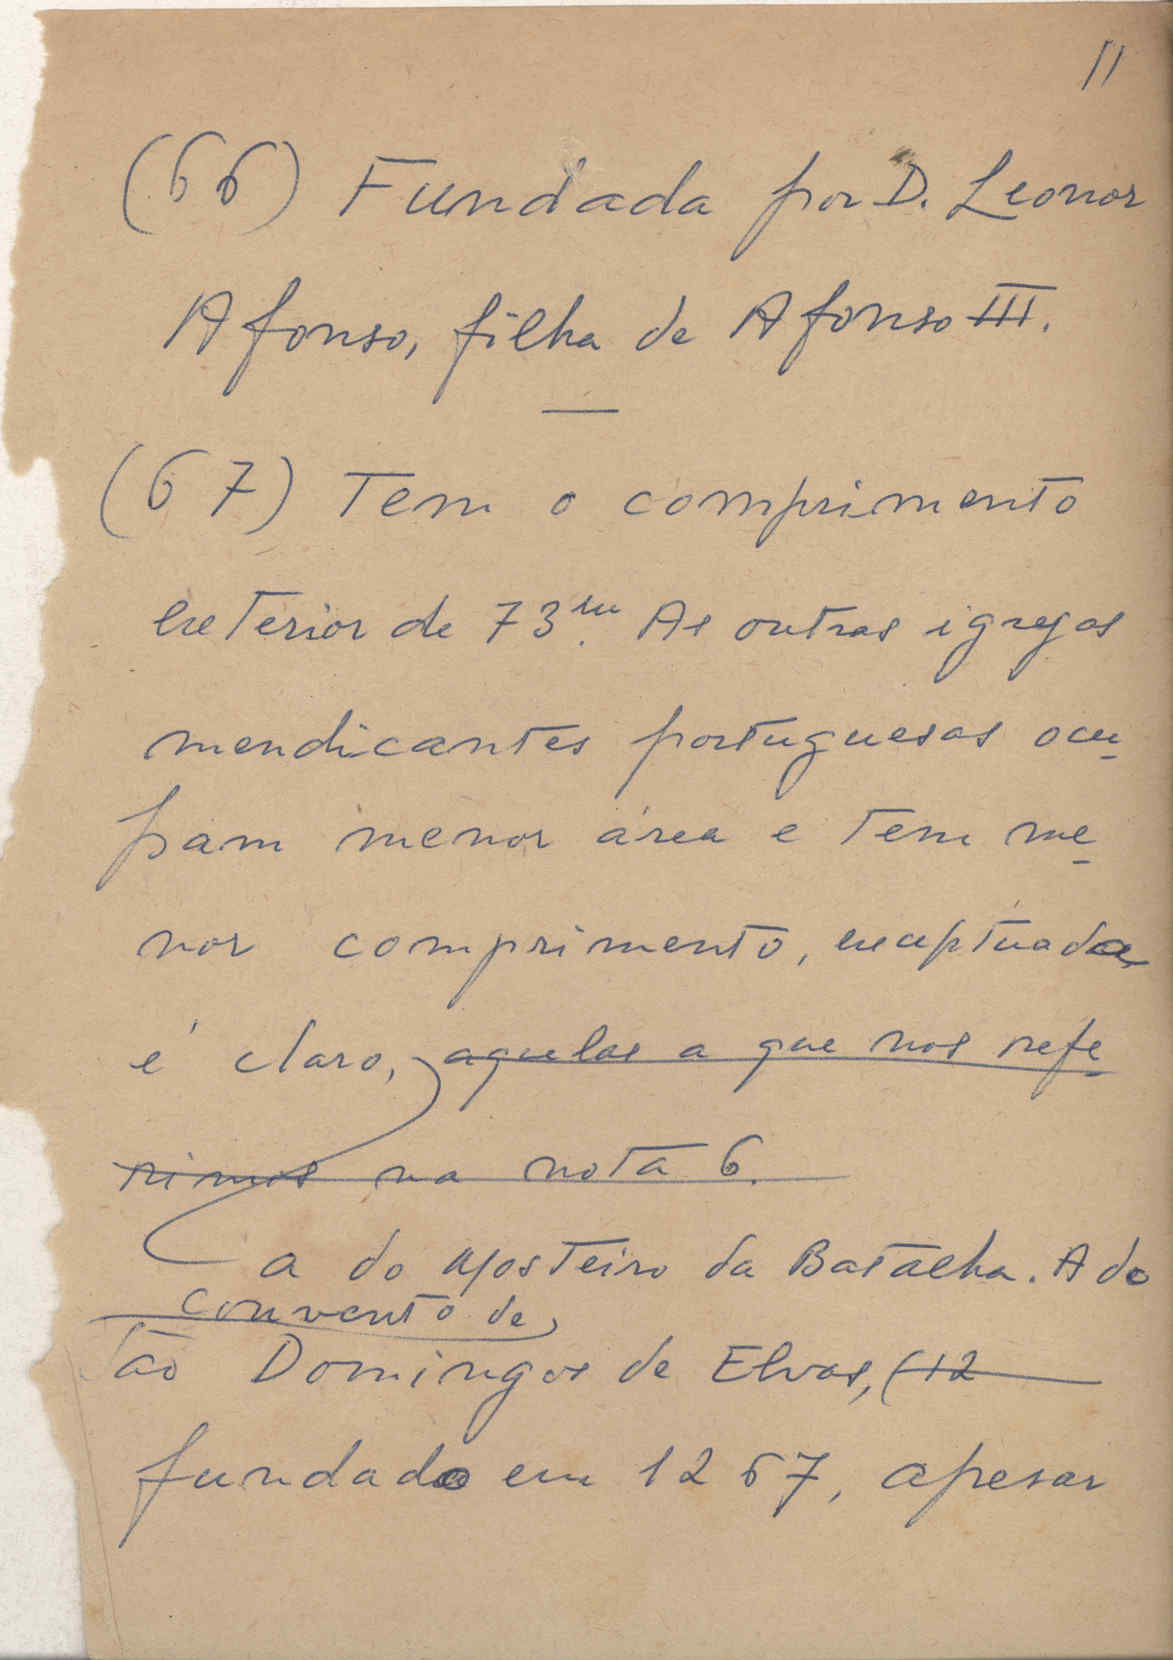 11
(66) Fundada por D. Leonor
Afonso, filha de Afonso III.
(67) Tem o comprimento
exterior de 73m. As outras igrejas
mendicantes portuguesas ocu-
pam menor área e tem me-
nor comprimento, exceptuada
é claro, aquelas a que nos refe-
rimos na nota 6.
a do Mosteiro da Batalha. A do
convento de
São Domingos de Elvas, (12
fundado em 1267, apesar